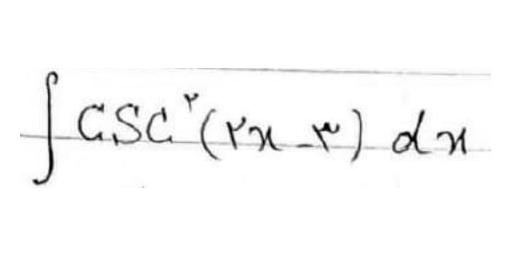 ∫ csc^۲(۲x-۳) dx